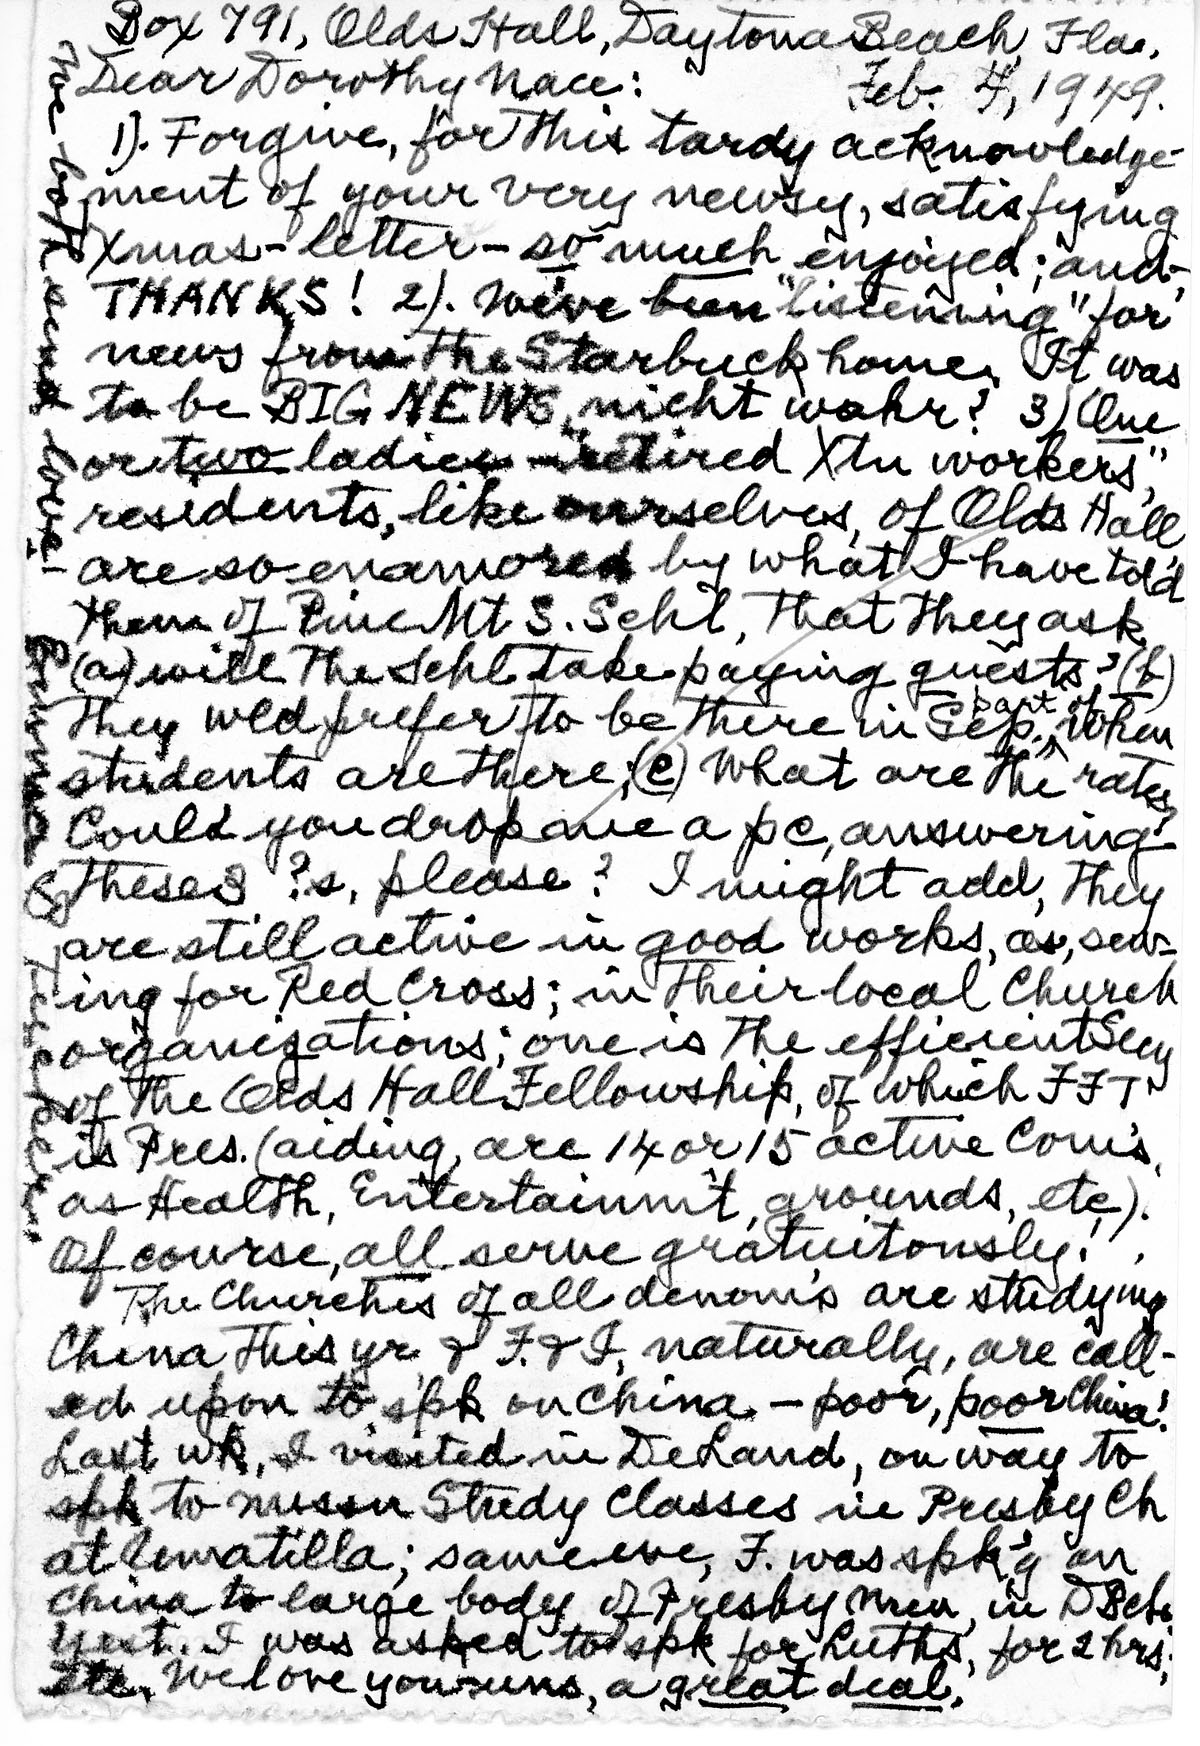 Box 791, Olds Hall, Daytona Beach, Fla.
Dear Dorothy Nace: Feb. 4, 1949.
1). Forgive, for this tardy acknowledge-
ment of your very newsy, satisfying
Xmas-letter - so much enjoyed; and,
THANKS! 2). We've been "listening" for
news from the Starbuck home. It was
to be BIG NEWS, nicht wahr? 3) One
or two ladies - "retired Xtn workers",
residents, like ourselves, of Olds Hall
are so enamored by what I have told
them of Pine Mt S. Schl, that they ask
(a) will the Schl take paying guests? (b)
They wld prefer to be there in Sep. part of when
students are there; (c) What are the rates?
Could you drop me a pc, answering
these 3 ?s, please? I might add, they
are still active in good works, as, sew-
ing for Red Cross; in their local Church
organizations; one is the efficient Secy
of the Olds Hall Fellowship, of which FFT
is Pres. (aiding, are 14 or 15 active Com's,
as Health, Entertainm't, grounds, etc).
Of course, all serve gratuitously!
The Churches of all denom's are studying
China this yr & F. & I, naturally, are call-
ed upon to spk on China. - poor, poor China!
Last wk, I visited in DeLand, on way to
spk to missn Study Classes in Presby Ch
at Umatilla; same eve, F. was spk'g on
China to large body of Presby Men, in D Bch.
Yest. I was asked to spk for Luths, for 2 hrs,
etc. We love you-uns, a great deal.
We both send love!
Emma &